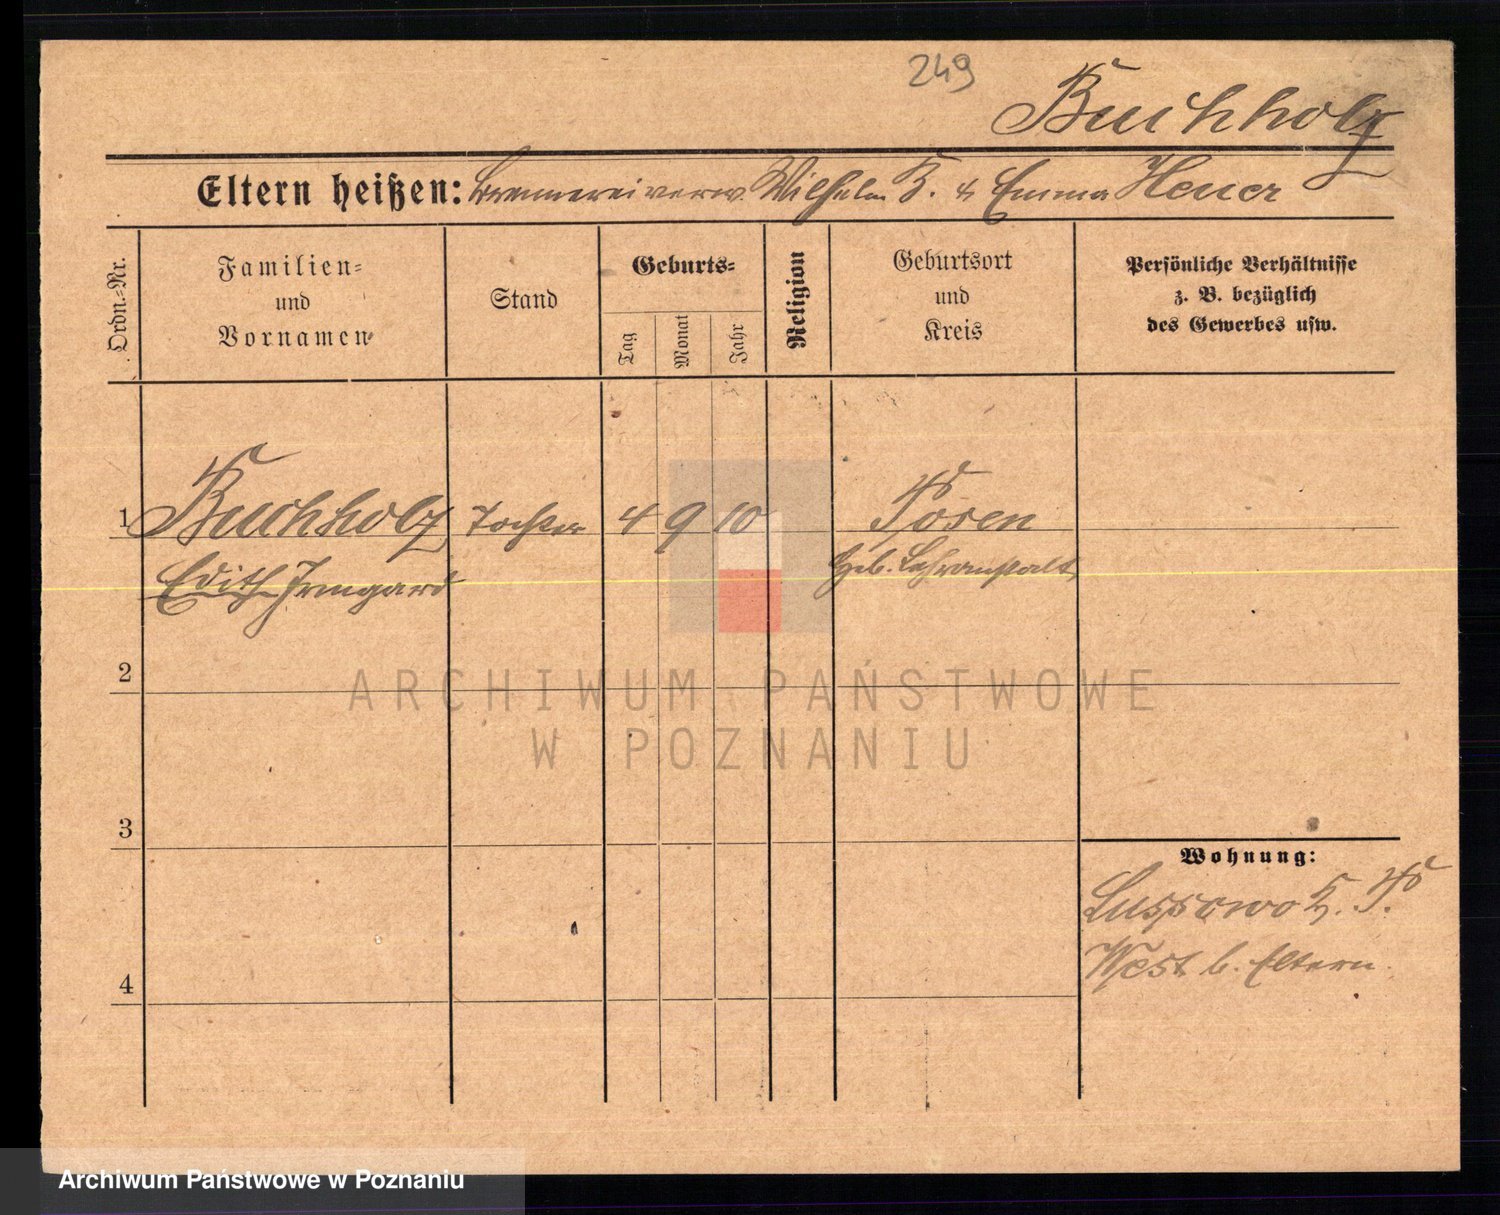 249
Buchholz
Eltern heißen: Brennereiverw. Wilhelm B. & Emma Heuer
Ordn.-Nr.
Familien-
und
Vornamen
Stand
Geburts-
Tag
Monat
Jahr
Religion
Geburtsort
und
Kreis
Persönliche Verhältnisse
z. B. bezüglich
des Gewerbes usw.
1 Buchholz Tochter 4 9 10 Posen
Edith Irmgard Heb. Lehranstalt
2
ARCHIWUM PAŃSTWOWE
W POZNANIU
3
Wohnung:
Lussowo K. P.
West b. Eltern.
4
Archiwum Państwowe w Poznaniu